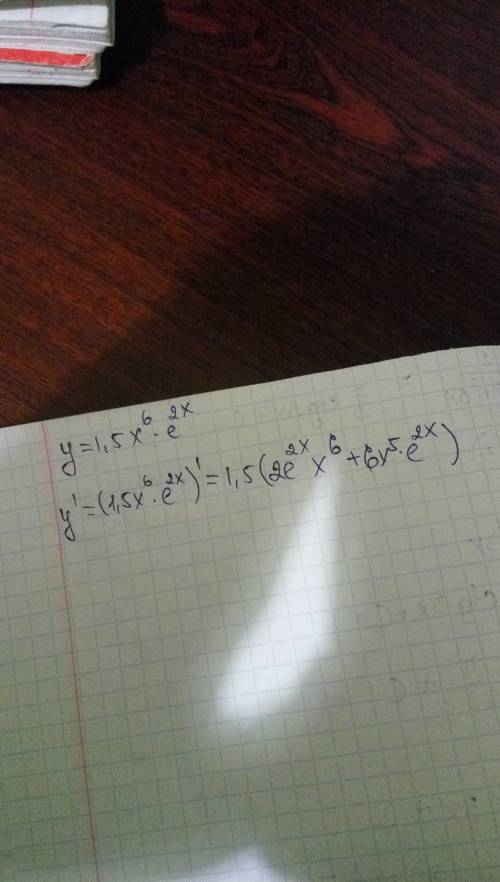 y=1,5x⁶·e²ˣ
y'=(1,5x⁶·e²ˣ)'=1,5(2e²ˣx⁶+6x⁵·e²ˣ)